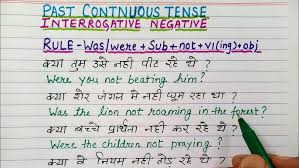 PAST CONTINUOUS TENSE
INTERROGATIVE NEGATIVE
RULE - Was/were + Sub + not + v1(ing) + obj
क्या तुम उसे नहीं पीट रहे थे ?
Were you not beating him?
क्या शेर जंगल में नहीं घूम रहा था ?
Was the lion not roaming in the forest?
क्या बच्चे प्रार्थना नहीं कर रहे थे ?
Were the children not praying ?
क्या वे नियम नहीं तोड़ रहे थे ?